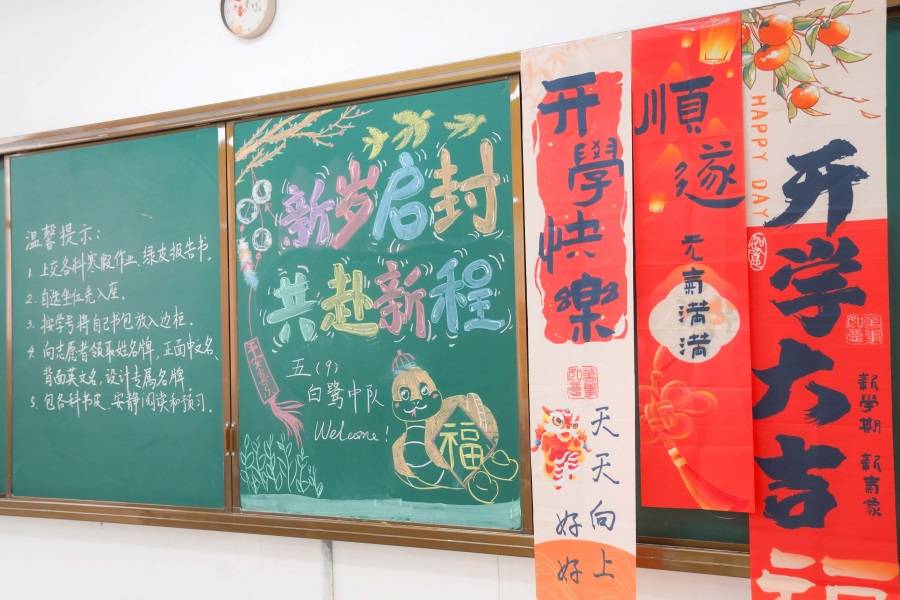 温馨提示：
1. 上交各科寒假作业、绿皮报告书。
2. 自选坐位先入座。
3. 按学号将自己书包放入边柜。
4. 向志愿者领取姓名牌，正面中文名、
背面英文名，设计专属名牌。
5. 包各科书皮、安静阅读和预习。
新岁启封
共赴新程
五(9)
白鹭中队
Welcome!
福
开學快樂
天天向上
好好
順遂
元氣满满
HAPPY DAY
开学大吉
新学期 新氣象